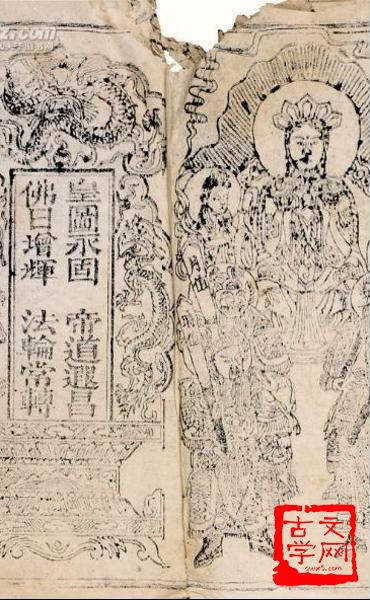 皇圖永固 帝道遐昌
佛日增輝 法輪常轉
古文学网